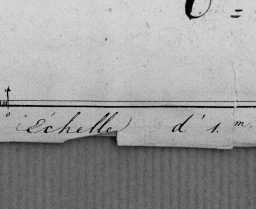 Echelle d' 1. m